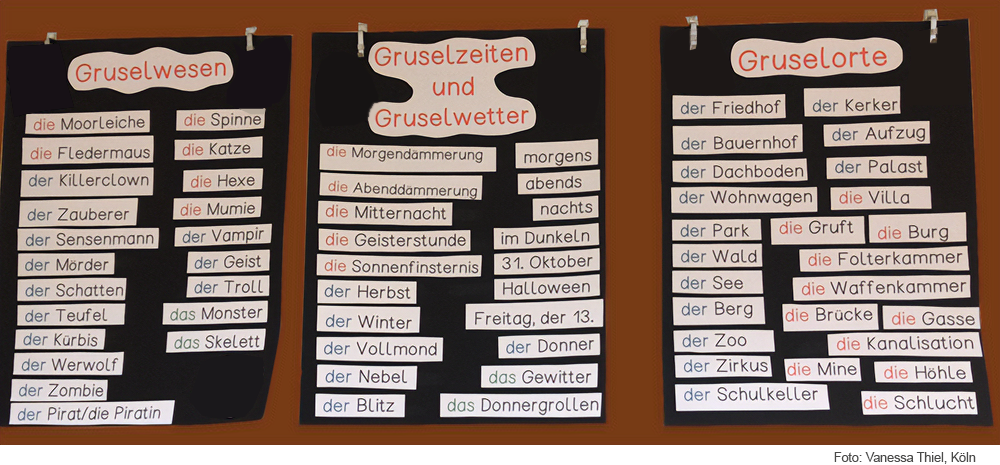 Gruselwesen
die Moorleiche
die Fledermaus
der Killerclown
der Zauberer
der Sensenmann
der Mörder
der Schatten
der Teufel
der Kürbis
der Werwolf
der Zombie
der Pirat/die Piratin
die Spinne
die Katze
die Hexe
die Mumie
der Vampir
der Geist
der Troll
das Monster
das Skelett
Gruselzeiten
und
Gruselwetter
die Morgendämmerung
die Abenddämmerung
die Mitternacht
die Geisterstunde
die Sonnenfinsternis
der Herbst
der Winter
der Vollmond
der Nebel
der Blitz
morgens
abends
nachts
im Dunkeln
31. Oktober
Halloween
Freitag, der 13.
der Donner
das Gewitter
das Donnergrollen
Gruselorte
der Friedhof
der Bauernhof
der Dachboden
der Wohnwagen
der Park
der Wald
der See
der Berg
der Zoo
der Zirkus
der Schulkeller
der Kerker
der Aufzug
der Palast
die Villa
die Gruft
die Burg
die Folterkammer
die Waffenkammer
die Brücke
die Gasse
die Kanalisation
die Mine
die Höhle
die Schlucht
Foto: Vanessa Thiel, Köln